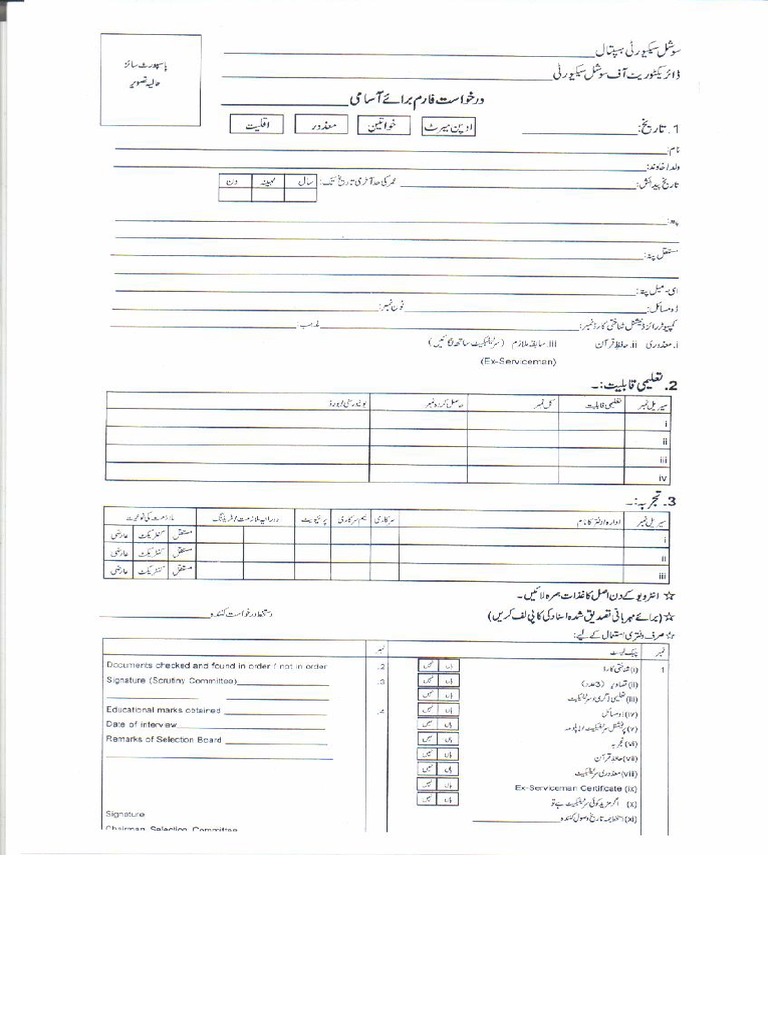 سوشل سیکیورٹی ہسپتال
ڈائریکٹوریٹ آف سوشل سیکیورٹی
پاسپورٹ سائز
حالیہ تصویر
درخواست فارم برائے آسامی
1. تاریخ:
اوپن میرٹ خواتین معذور اقلیت
نام:
ولد/خاوند:
تاریخ پیدائش: عمر کی حد آخری تاریخ تک: سال مہینہ دن
پتہ:
مستقل پتہ:
ای-میل پتہ:
ڈومسائل: فون نمبر:
کمپیوٹرائزڈ نیشنل شناختی کارڈ نمبر: مذہب:
i. معذوری ii. حافظ قرآن iii. سابقہ ملازم (سرٹیفکیٹ ساتھ لگائیں)
(Ex-Serviceman)
2. تعلیمی قابلیت:۔
سیریل نمبر تعلیمی قابلیت کل نمبر حاصل کردہ نمبر یونیورسٹی/بورڈ
i
ii
iii
iv
3. تجربہ:۔
سیریل نمبر ادارہ/دفتر کا نام سرکاری نیم سرکاری پرائیویٹ دورانیہ ملازمت/ٹریننگ ملازمت کی نوعیت
i مستقل کنٹریکٹ عارضی
ii مستقل کنٹریکٹ عارضی
iii مستقل کنٹریکٹ عارضی
☆ انٹرویو کے دن اصل کاغذات ہمراہ لائیں۔
☆ (برائے مہربانی تصدیق شدہ اسناد کی کاپی لف کریں) دستخط درخواست کنندہ
☆ صرف دفتری استعمال کے لیے:
نمبر چیک لسٹ
1 (i) شناختی کارڈ ہاں نہیں
(ii) تصاویر (3عدد) ہاں نہیں
(iii) تعلیمی ڈگری و سرٹیفکیٹ ہاں نہیں
(iv) ڈومسائل ہاں نہیں
(v) پروفیشنل سرٹیفکیٹ/ڈپلومہ ہاں نہیں
(vi) تجربہ ہاں نہیں
(vii) حافظ قرآن ہاں نہیں
(vii) معذوری سرٹیفکیٹ ہاں نہیں
Ex-Serviceman Certificate (ix) ہاں نہیں
(x) اگر مزید کوئی سرٹیفکیٹ ہے تو ہاں نہیں
(xi) دستخط بمہ تاریخ وصول کنندہ
نمبر
.2 Documents checked and found in order / not in order
.3 Signature (Scrutiny Committee)
.4 Educational marks obtained
Date of interview
Remarks of Selection Board
Signature
Chairman Selection Committee